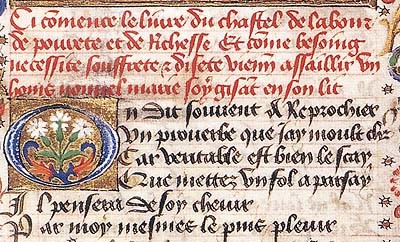 Ci cōmence le livre du chastel de labour
de povrete et de Richesse Et cōme besoing
necessite souffrete & disete vienn assaillir vn
home nouuel marie soy gisāt en son lit
On dit souvent & Reprochier
Vn proverbe que jay moult chr
Car veritable est bien le scay
Que mettez vn fol a par say
Il pensera de soy cheuir
Par moy mesmes le puis pleuir